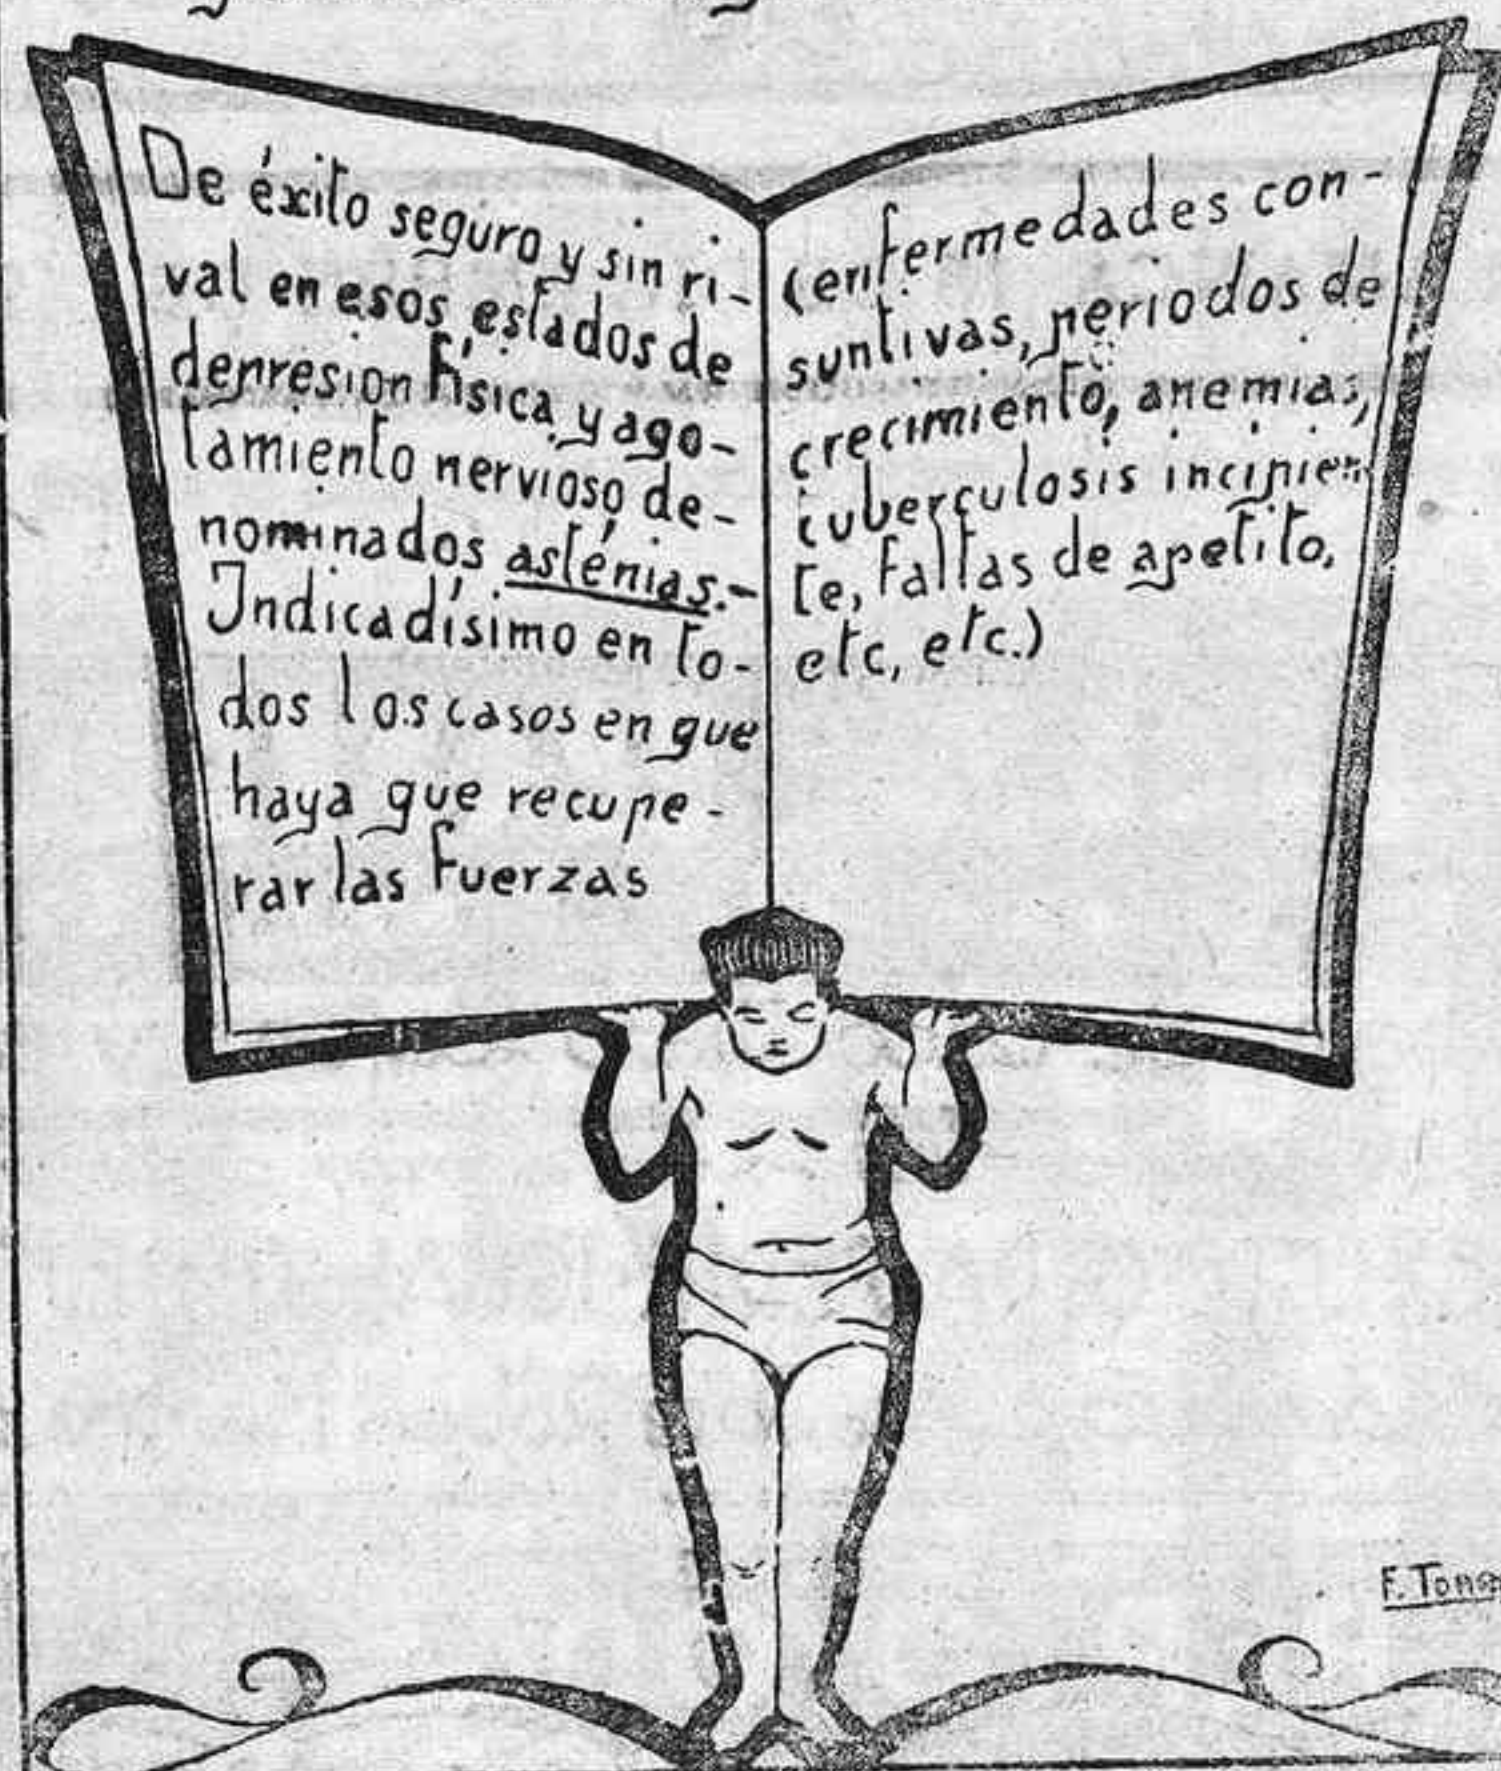 De éxito seguro y sin ri-
val en esos estados de
depresion física y ago-
tamiento nervioso de-
nominados asténias.-
Indicadísimo en to-
dos los casos en que
haya que recupe-
rar las fuerzas
(enfermedades con-
suntivas, periodos de
crecimiento, anemias,
tuberculosis incipien
te, faltas de apetito,
etc, etc.)